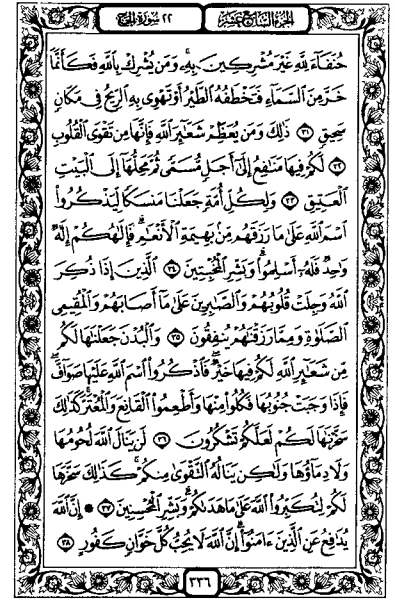 الجزء السابع عشر ٢٢ سورة الحج
حُنَفَآءَ لِلَّهِ غَيْرَ مُشْرِكِينَ بِهِۦ ۚ وَمَن يُشْرِكْ بِٱللَّهِ فَكَأَنَّمَا
خَرَّ مِنَ ٱلسَّمَآءِ فَتَخْطَفُهُ ٱلطَّيْرُ أَوْ تَهْوِى بِهِ ٱلرِّيحُ فِى مَكَانٍ
سَحِيقٍ ٣١ ذَٰلِكَ وَمَن يُعَظِّمْ شَعَـٰٓئِرَ ٱللَّهِ فَإِنَّهَا مِن تَقْوَى ٱلْقُلُوبِ
٣٢ لَكُمْ فِيهَا مَنَـٰفِعُ إِلَىٰٓ أَجَلٍ مُّسَمًّى ثُمَّ مَحِلُّهَآ إِلَى ٱلْبَيْتِ
ٱلْعَتِيقِ ٣٣ وَلِكُلِّ أُمَّةٍ جَعَلْنَا مَنسَكًا لِّيَذْكُرُوا۟
ٱسْمَ ٱللَّهِ عَلَىٰ مَا رَزَقَهُم مِّنۢ بَهِيمَةِ ٱلْأَنْعَـٰمِ ۗ فَإِلَـٰهُكُمْ إِلَـٰهٌ
وَٰحِدٌ فَلَهُۥٓ أَسْلِمُوا۟ ۗ وَبَشِّرِ ٱلْمُخْبِتِينَ ٣٤ ٱلَّذِينَ إِذَا ذُكِرَ
ٱللَّهُ وَجِلَتْ قُلُوبُهُمْ وَٱلصَّـٰبِرِينَ عَلَىٰ مَآ أَصَابَهُمْ وَٱلْمُقِيمِى
ٱلصَّلَوٰةِ وَمِمَّا رَزَقْنَـٰهُمْ يُنفِقُونَ ٣٥ وَٱلْبُدْنَ جَعَلْنَـٰهَا لَكُم
مِّن شَعَـٰٓئِرِ ٱللَّهِ لَكُمْ فِيهَا خَيْرٌ ۖ فَٱذْكُرُوا۟ ٱسْمَ ٱللَّهِ عَلَيْهَا صَوَآفَّ ۖ
فَإِذَا وَجَبَتْ جُنُوبُهَا فَكُلُوا۟ مِنْهَا وَأَطْعِمُوا۟ ٱلْقَانِعَ وَٱلْمُعْتَرَّ ۚ كَذَٰلِكَ
سَخَّرْنَـٰهَا لَكُمْ لَعَلَّكُمْ تَشْكُرُونَ ٣٦ لَن يَنَالَ ٱللَّهَ لُحُومُهَا
وَلَا دِمَآؤُهَا وَلَـٰكِن يَنَالُهُ ٱلتَّقْوَىٰ مِنكُمْ ۚ كَذَٰلِكَ سَخَّرَهَا
لَكُمْ لِتُكَبِّرُوا۟ ٱللَّهَ عَلَىٰ مَا هَدَىٰكُمْ ۗ وَبَشِّرِ ٱلْمُحْسِنِينَ ٣٧ ۞ إِنَّ ٱللَّهَ
يُدَٰفِعُ عَنِ ٱلَّذِينَ ءَامَنُوٓا۟ ۗ إِنَّ ٱللَّهَ لَا يُحِبُّ كُلَّ خَوَّانٍ كَفُورٍ ٣٨
٣٣٦